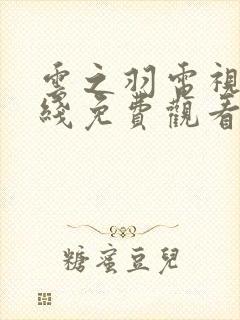 雲之羽電視
綫免費觀看
糖蜜豆兒